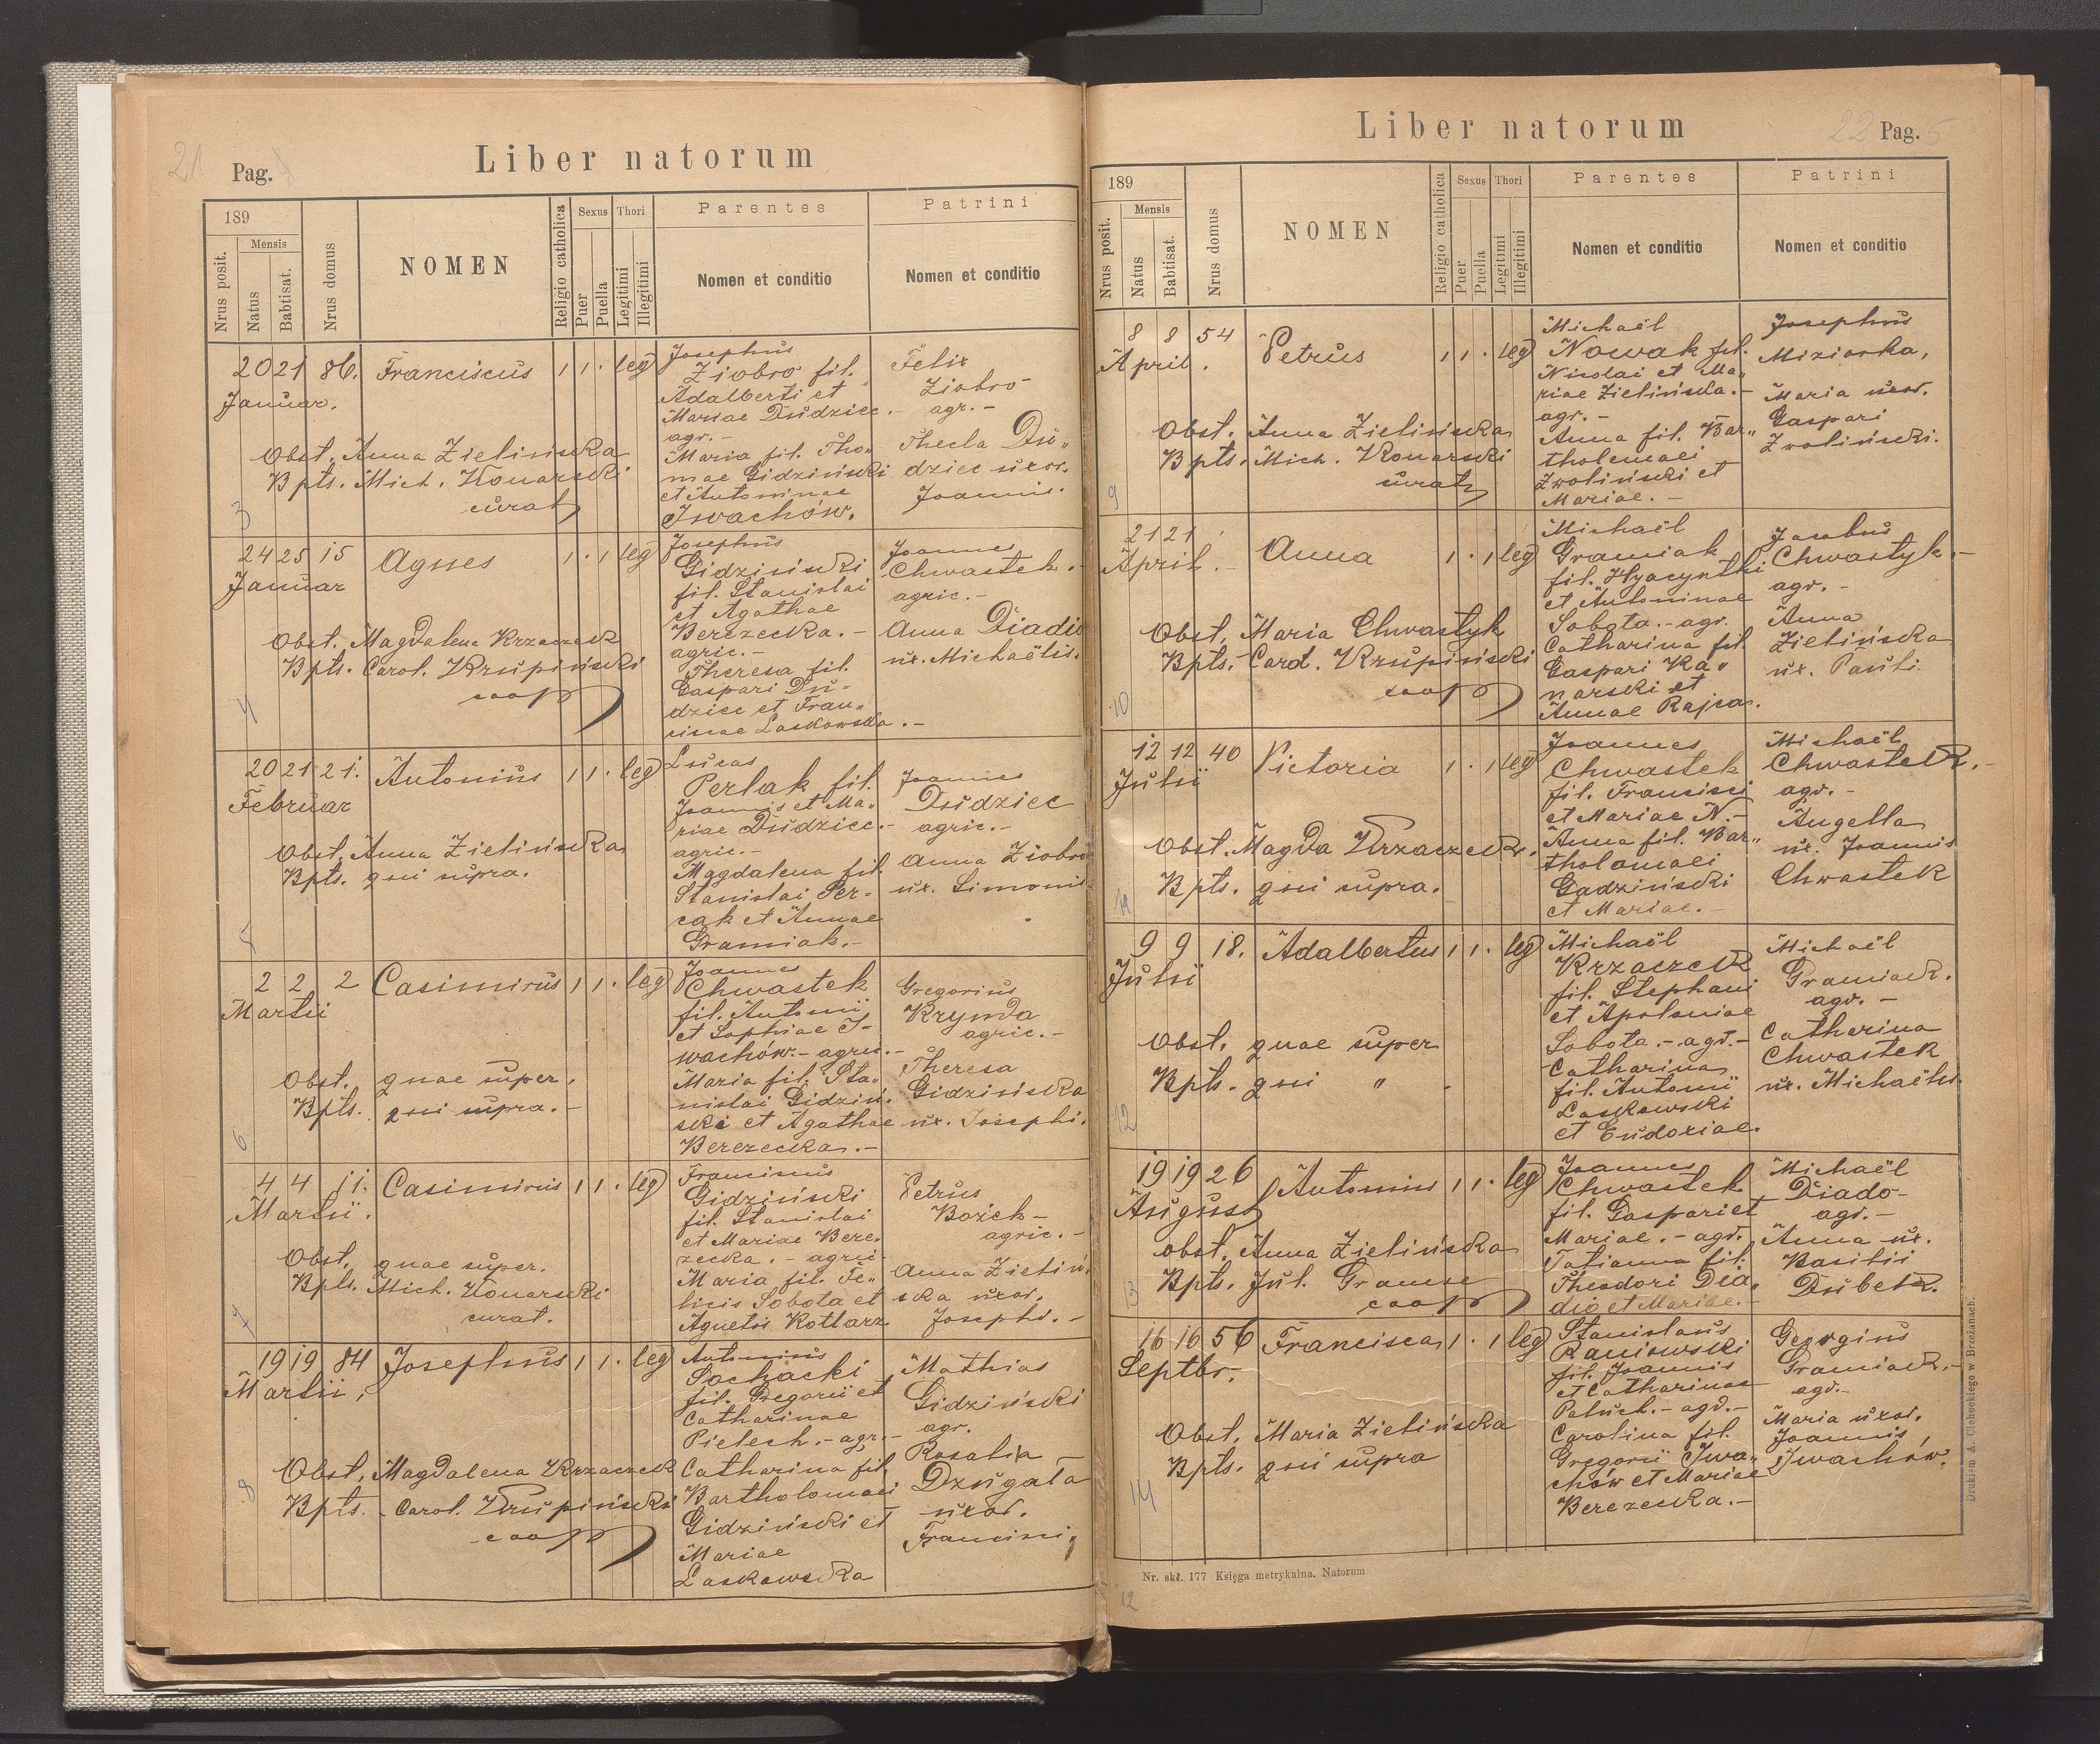 21 Pag.
Liber natorum
189
Nrus posit.
Mensis
Natus
Babtisat.
Nrus domus
NOMEN
Religio catholica
Sexus
Puer
Puella
Thori
Legitimi
Illegitimi
Parentes
Nomen et conditio
Patrini
Nomen et conditio
3
20 21 86. Franciscus 1 1 · leg
Januar.
Obst. Anna Zielińska
Bpts. Mich. Konarski
curat
Josephus
Ziobro fil.
Adalberti et
Mariae Dudziec.-
agr.-
Maria fil. Tho„
mae Gidziński
et Antoninae
Iwachów.
Felix
Ziobro
agr.-
Thecla Du„
dziec uxor.
Joannis.
4
24 25 15 Agnes 1 · 1 leg
Januar
Obst. Magdalena Krzaczek
Bpts. Carol. Krupiński
coop
Josephus
Gidziński
fil. Stanislai
et Agathae
Berezecka.-
agric.-
Theresa fil.
Gaspari Du-
dziec et Fran„
ciscae Laskowska.-
Joannes
Chwastek.-
agric.-
Anna Diadio
ux. Michaëlis.
5
20 21 21. Antonius 1 1 · leg
Februar
Obst. Anna Zielińska
Bpts. qui supra.
Lucas
Perlak fil.
Joannis et Ma„
riae Dudziec.-
agric.-
Magdalena fil.
Stanislai Per-
cak et Annae
Gramiak.-
Joannes
Dudziec
agric.-
Anna Ziobro
ux. Simonis
6
2 2 2 Casimirus 1 1 · leg
Martii
Obst. quae super.
Bpts. qui supra.-
Joannes
Chwastek
fil. Antonii
et Sophiae I-
wachów.- agric.-
Maria fil. Sta„
nislai Gidziń„
ski et Agathae
Berezecka.-
Gregorius
Krynda
agric.-
Theresa
Gidzińska
ux. Josephi.
7
4 4 11. Casimirus 1 1 · leg
Martii.
Obst. quae super.
Bpts. Mich. Konarski
curat.
Franciscus
Gidziński
fil. Stanislai
et Mariae Bere„
zecka.- agric.
Maria fil. Fe„
licis Sobota et
Agnetis Kotlarz
Petrus
Bozick-
agric.-
Anna Zieliń„
ska uxor.
Josephi.-
8
19 19 84 Josephus 1 1 · leg
Martii.
Obst. Magdalena Krzaczek
Bpts. Carol. Krupiński
coop
Antonius
Sochacki
fil. Gregorii et
Catharinae
Pielech.- agr.-
Catharina fil.
Bartholomaei
Gidziński et
Mariae
Laskowska
Mathias
Gidziński
agr.
Rosalia
Dzugała
uxor.
Francisci.
Liber natorum
22 Pag. 5
189
Nrus posit.
Mensis
Natus
Babtisat.
Nrus domus
NOMEN
Religio catholica
Sexus
Puer
Puella
Thori
Legitimi
Illegitimi
Parentes
Nomen et conditio
Patrini
Nomen et conditio
9
8 8 54 Petrus 1 1 · leg
April.
Obst. Anna Zielińska
Bpts. Mich. Konarski
curat
Michaël
Nowak fil.
Nicolai et Ma„
riae Zielińska.-
agr.-
Anna fil. Bar„
tholemaei
Zwoliński et
Mariae.-
Josephus
Miziorka,
Maria uxor.
Gaspari
Zwoliński.
10
21 21 Anna 1 · 1 leg
April.-
Obst. Maria Chwastyk
Bpts. Carol. Krupiński
coop
Michaël
Gramiak
fil. Hyacynthi
et Antoninae
Sobota.- agr.
Catharina fil.
Gaspari Ka„
narski et
Annae Rajca.
Jacobus
Chwastyk.-
agr.-
Anna
Zielińska
ux. Pauli.
11
12 12 40 Victoria 1 · 1 leg
Julii
Obst. Magda Krzaczek.
Bpts. qui supra.
Joannes
Chwastek
fil. Francisci
et Mariae N.-
Anna fil. Bar„
tholomaei
Gadziński
et Mariae.-
Michaël
Chwastek.-
agr.-
Angella
ux. Joannis
Chwastek
12
9 9 18. Adalbertus 1 1 · leg
Julii
Obst. quae super
Bpts. qui „
Michaël
Krzaczek
fil. Stephani
et Apoloniae
Sobota.- agr.-
Catharina
fil. Antonii
Laskowski
et Eudoxiae.
Michaël
Gramiack.
agr.-
Catherina
Chwastek
ux. Michaëlis.
13
19 19 26 Antonius 1 1 · leg
August
Obst. Anna Zielińska
Bpts. Jul. Gramse
coop
Joannes
Chwastek
fil. Gaspari et
Mariae.- agr.
Tatianna fil.
Theodori Dia„
dio et Mariae.-
Michaël
Diado-
agr.-
Anna ux.
Basilii
Dubek.
14
16 16 56 Francisca 1 · 1 leg
Septbr.
Obst. Maria Zielińska
Bpts. qui supra
Stanislaus
Raniowski
fil. Joannis
et Catharinae
Paluch.- agr.-
Carolina fil.
Gregorii Iwa„
chów et Mariae
Berezecka.-
Georgius
Gramiack.-
agr.-
Maria uxor.
Joannis
Iwachów.
Nr. skł. 177 Księga metrykalna. Natorum
12
Drukiem A. Cichockiego w Brzeżanach.